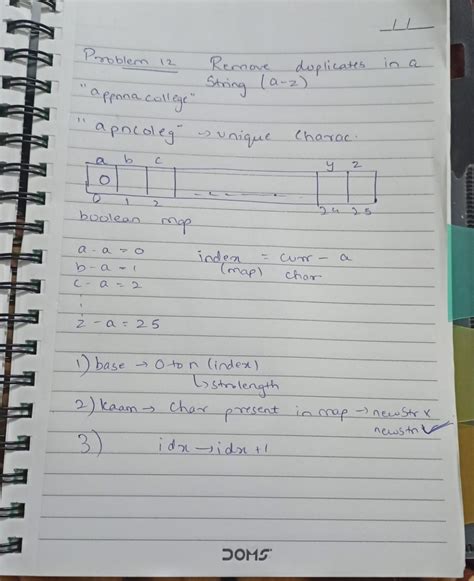 11
Problem 12 Remove duplicates in a
String (a-z)
"appnnacollege"
"apncoleg" → unique Charac.
a b c y z
0
0 1 2 - - - - - - 24 25
boolean map
a - a = 0 index = curr - a
b - a = 1 (map) char
c - a = 2
⋮
z - a = 25
1) base → 0 to n (index)
↳ strlength
2) kaam → Char present in map → newStr x
newStr ✓
3) idx → idx + 1
DOMS